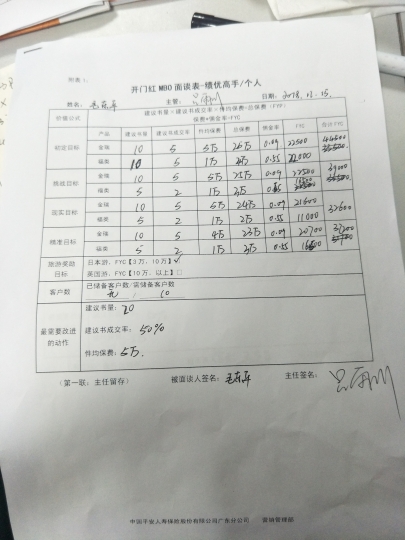 附表1：
开门红MBO面谈表-绩优高手/个人
姓名： 主管： 日期：2018.12.15.
价值公式 建议书量×建议书成交率×件均保费=总保费（FYP）
保费×佣金率=FYC
产品 建议书量 建议书成交率 件均保费 总保费 佣金率 FYC 合计FYC
目标 金瑞 10 5 5万 0.09 22500
福类 10 5 1万 0.55
挑战目标 金瑞 10 5 5万 25万 0.09 22500
福类 5 2 1万
现实目标 金瑞 10 5 5万 24万 0.09 21600 32600
福类 5 2 1万 2万 0.55 11000
精准目标 金瑞 10 5 4万 23万 0.09 20700
福类 5 2 1万 3万 0.55
旅游奖励目标 日本游，FYC【3万，10万】√
英国游，FYC【10万，以上】□
客户数 已储备客户数/需储备客户数
10
最需要改进的动作
建议书量：20
建议书成交率：50%
件均保费：5万.
（第一联：主任留存） 被面谈人签名： 主任签名：
中国平安人寿保险股份有限公司广东分公司 营销管理部